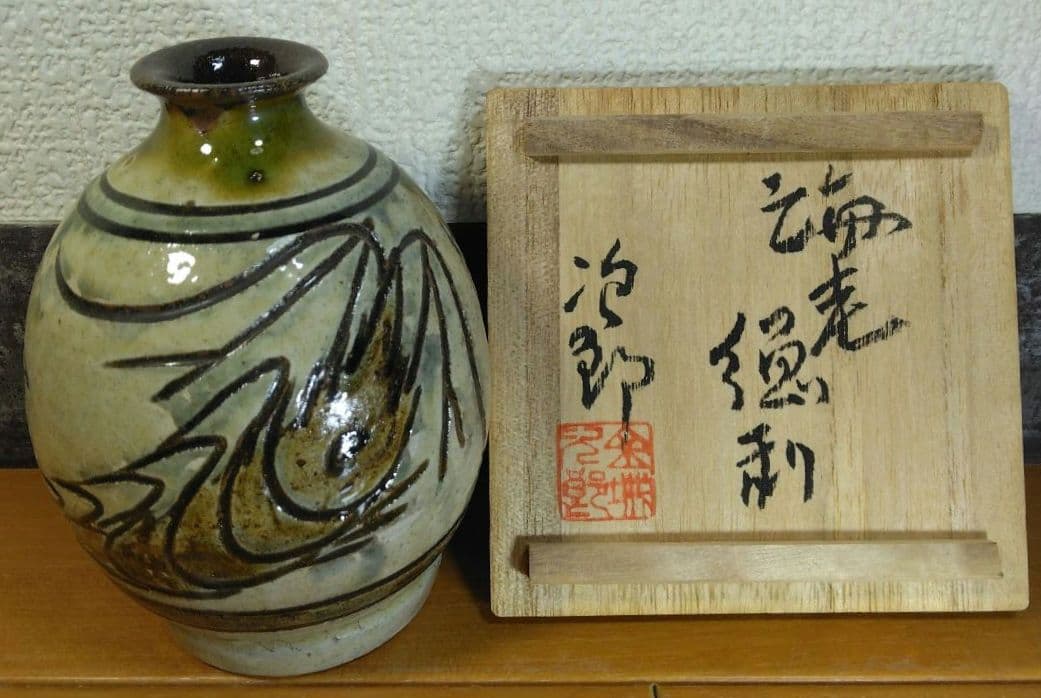 海老
徳利
次郎